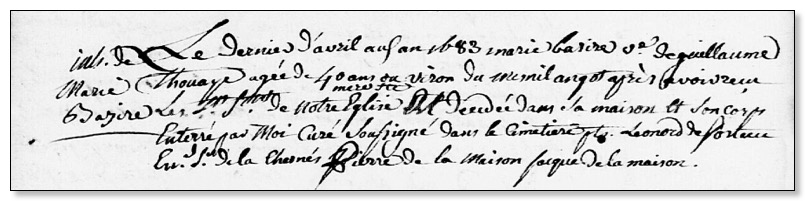 inh. de Le dernier d'avril aud. an 1683 marie bazire ve. de guillaume
Marie Thouaye agée de 40 ans ou viron du mesnil angot après avoir receu
Bazire Les sts. sacmts. de notre mere ste Eglise Est decedée dans sa maison Et son corps
Enterré par Moi Curé Soussigné dans le Cimetiere pts. Leonord de
Sr. de la Chesnés Pierre de la Maison jacque de la maison.